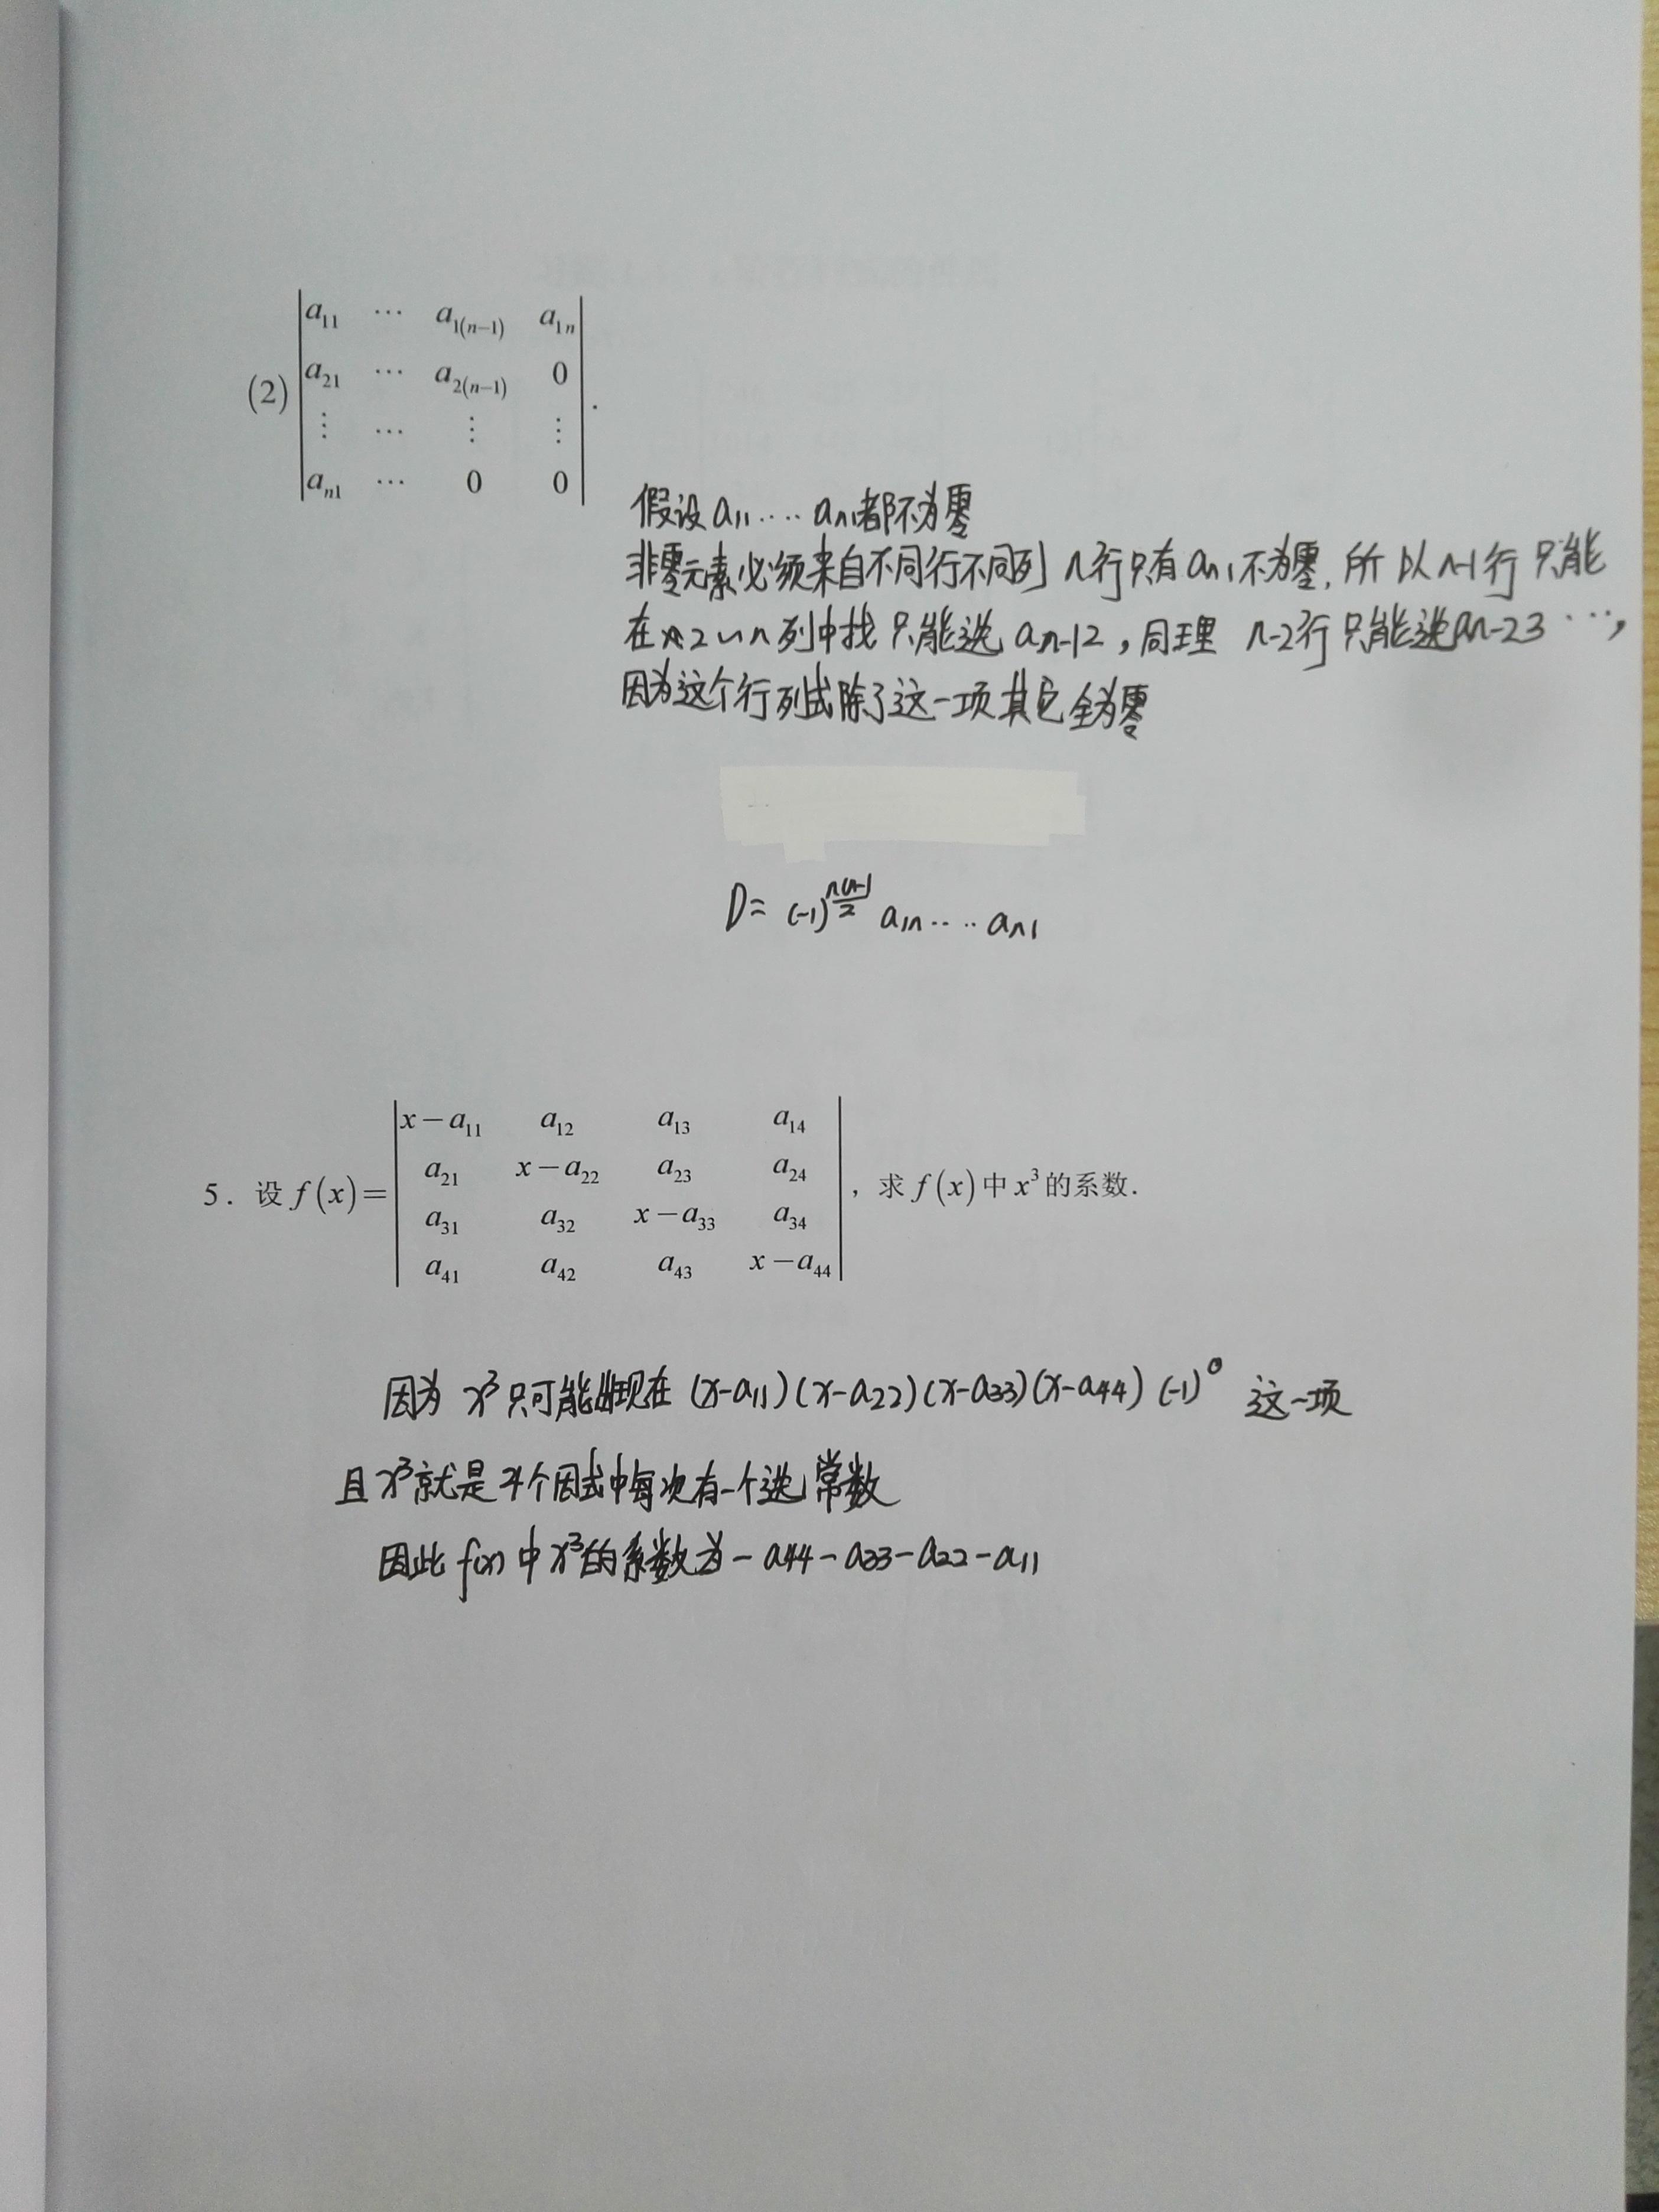 (2) | a₁₁ ⋯ a₁₍ₙ₋₁₎ a₁ₙ |
| a₂₁ ⋯ a₂₍ₙ₋₁₎ 0 | .
| ⋮ ⋯ ⋮ ⋮ |
| aₙ₁ ⋯ 0 0 |
假设 a₁₁ ‥‥ aₙ₁ 都不为零
非零元素必须来自不同行不同列 n行只有 aₙ₁ 不为零, 所以 n-1行 只能
在 2 ‥ n 列中找 只能选 aₙ₋₁₂ , 同理 n-2行 只能选 aₙ₋₂₃ ⋯,
因为这个行列式除了这一项其它全为零
D = (-1)^{n(n-1)/2} a₁ₙ ‥‥ aₙ₁
5. 设 f(x) = | x−a₁₁ a₁₂ a₁₃ a₁₄ |
| a₂₁ x−a₂₂ a₂₃ a₂₄ |
| a₃₁ a₃₂ x−a₃₃ a₃₄ | , 求 f(x) 中 x³ 的系数.
| a₄₁ a₄₂ a₄₃ x−a₄₄ |
因为 x³ 只可能出现在 (x-a₁₁)(x-a₂₂)(x-a₃₃)(x-a₄₄)(-1)⁰ 这一项
且 x³ 就是 4个因式中每次有一个选常数
因此 f(x) 中 x³ 的系数为 -a₄₄-a₃₃-a₂₂-a₁₁